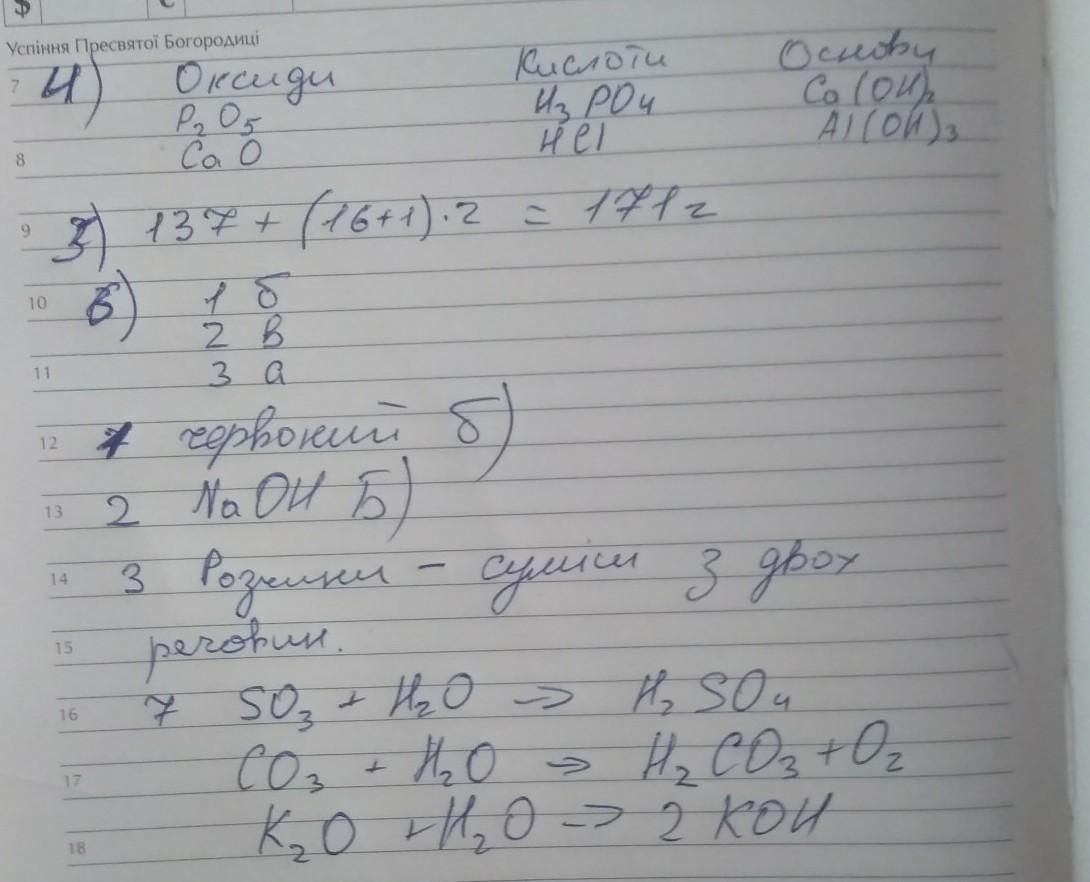 $ С
Успіння Пресвятої Богородиці
7 4) Оксиди Кислоти Основи
P₂O₅ H₃PO₄ Ca(OH)₂
8 CaO HCl Al(OH)₃
9 5) 137 + (16+1)·2 = 171г
10 6) 1 б
2 в
11 3 а
12 1 червоний б)
13 2 NaOH Б)
14 3 Розчини – суміси з двох
15 речовин.
16 7 SO₃ + H₂O => H₂SO₄
17 CO₃ + H₂O => H₂CO₃ + O₂
18 K₂O + H₂O => 2KOH